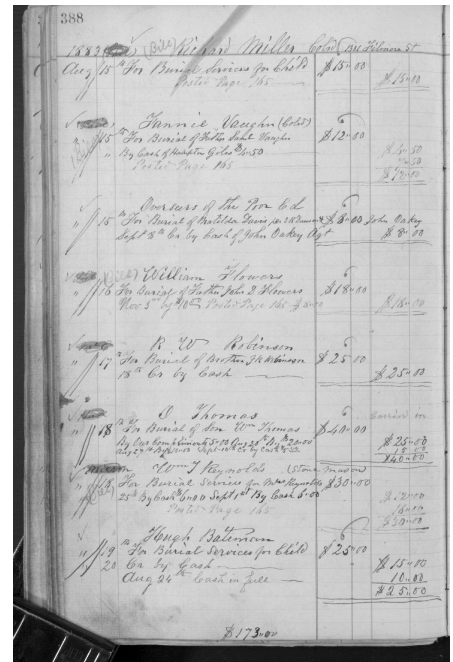 388
1883 (Bill) Richard Miller Cold
Aug 15th For Burial Services for Child $15.00
Posted Page 165 $15.00
Fannie Vaughn (Cold)
15th For Burial of Father Vaughn $12.00
" By Cash of Hampton Giles $4.50 $4.50
Posted Page 165 7.50
$12.00
Overseers of the Poor
" 15th For Burial of Matilda Davis $8.00 John Oakey
Sept 8th Cr by Cash of John Oakey Agt $8.00
(Bill) William Flowers
" 16 For Burial of Father John Flowers $18.00
Nov 5th by Posted Page 165 $18.00
R W Robinson
" 17th For Burial of Brother Robinson $25.00
18th Cr by Cash $25.00
D Thomas
" 18th For Burial of Son Wm Thomas $40.00
By Our Compliments 5.00 Aug 20th By 20.00 $25.00
15.00
$40.00
Wm T Reynolds (Stone Mason)
18 For Burial Services for Mrs Reynolds $30.00
25th By Cash 6.00 Sept 1st By Cash 6.00 $12.00
Posted Page 165 18.00
$30.00
Hugh Bateman
" 19th For Burial Services for Child $25.00
20 Cr by Cash $15.00
Aug 24th Cash in full 10.00
$25.00
$173.00